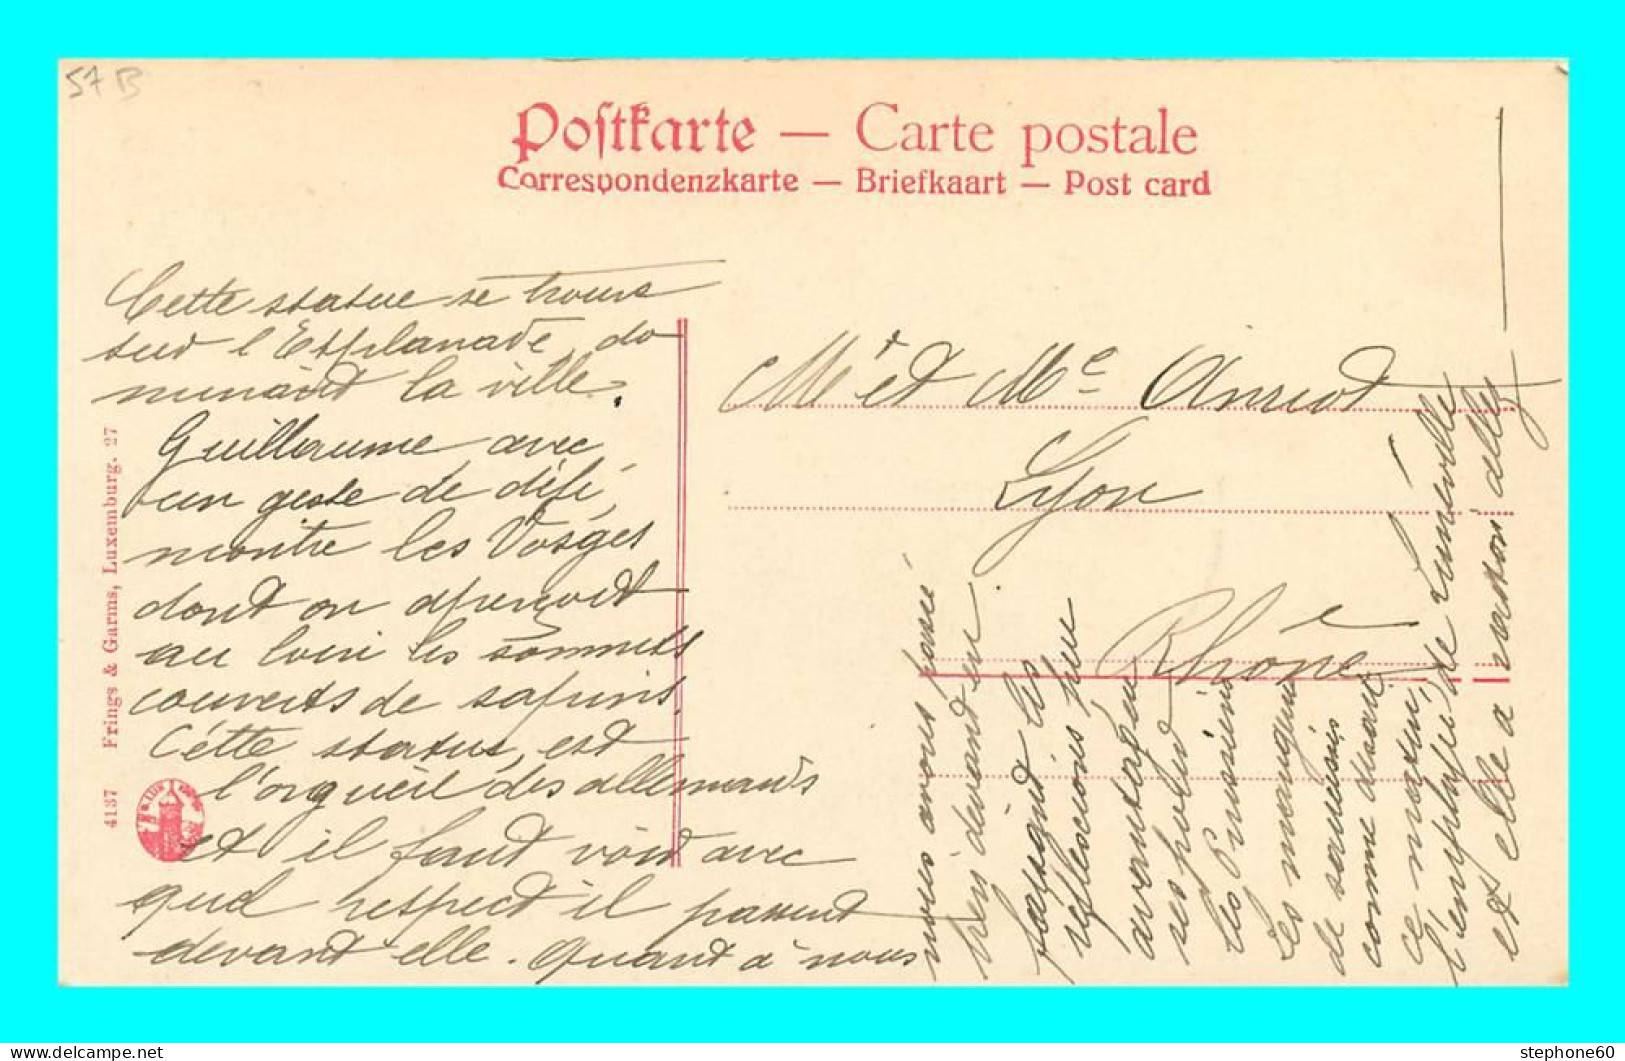 57 B
Postkarte — Carte postale
Correspondenzkarte — Briefkaart — Post card
Cette statue se trouve
sur l'Esplanade, do
minant la ville.
Guillaume avec
un geste de défi,
montre les Vosges
dont on aperçoit
au loin les sommets
couverts de sapins.
Cette statue, est
l'orgueil des allemands
et il faut voir avec
quel respect il passent
devant elle. Quant à nous
nous avons passé
rien devant en
faisant les
réflexions peu
avantageu
ses pour
les Prussiens
Les manques
de saucisses
comme disait
ce matin,
l'employé de Lunéville
et elle a raison allez
Mr et Me Anriot
Lyon
Rhône
4137 Frings & Garms, Luxemburg. 27
stephone60